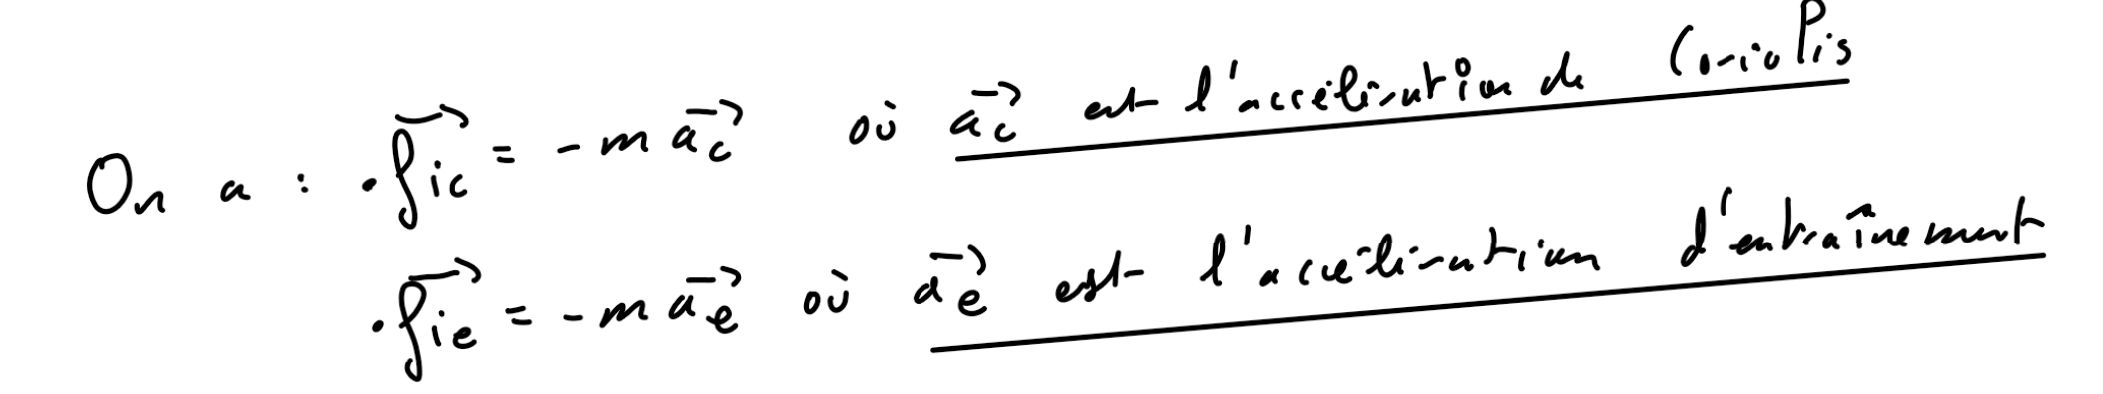 On a : • $\vec{f_{ic}} = -m \vec{a_c}$ où $\vec{a_c}$ est l'accélération de Coriolis
• $\vec{f_{ie}} = -m \vec{a_e}$ où $\vec{a_e}$ est l'accélération d'entraînement